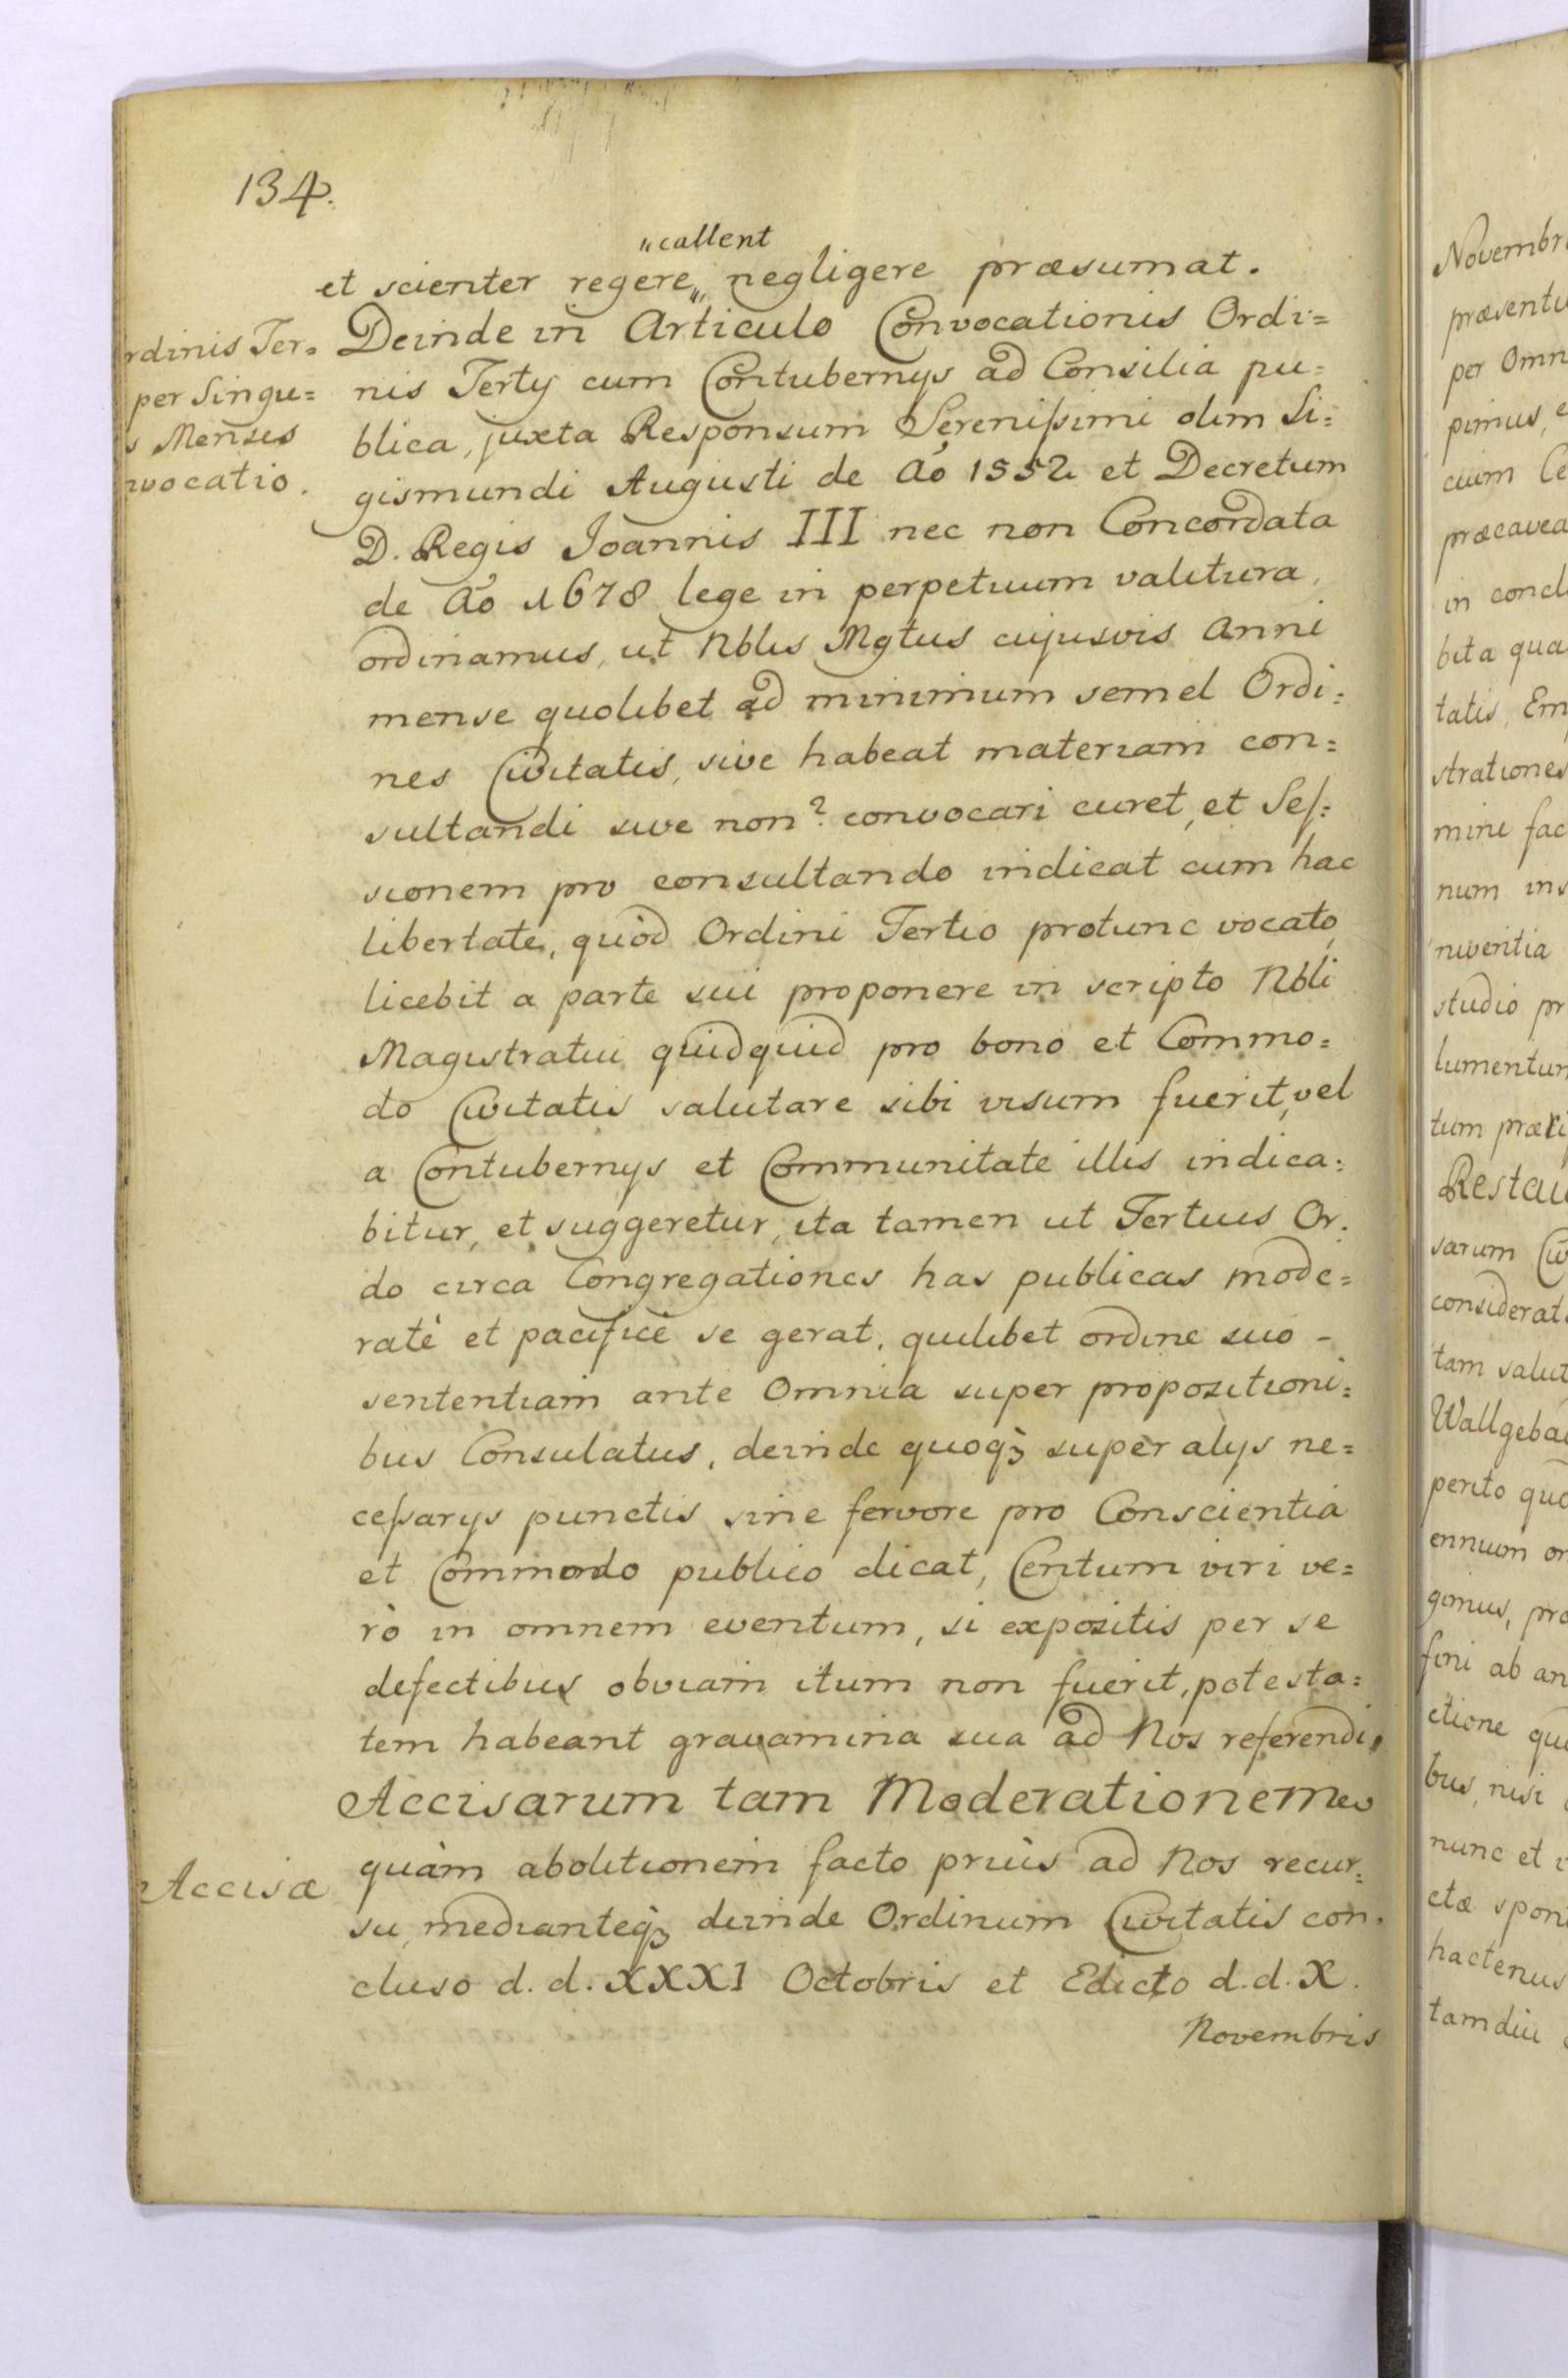 134.
"callent
et scienter regere,, negligere præsumat.
rdinis Ter=
per Singu=
s Menses
nvocatio.
Deinde in Articulo Convocationis Ordi=
nis Tertÿ cum Contubernÿs ad Consilia pu=
blica, juxta Responsum Serenissimi olim Si=
gismundi Augusti de Aõ 1552 et Decretum
D. Regis Joannis III nec non Concordata
de Aõ 1678 lege in perpetuum valitura,
ordinamus, ut Nblis Mgtus cujusvis Anni
mense quolibet ad minimum semel Ordi=
nes Civitatis, sive habeat materiam con=
sultandi sive non? convocari curet, et Ses=
sionem pro consultando indicat cum hac
libertate, quòd Ordini Tertio protunc vocato,
licebit a parte sui proponere in scripto Nbli
Magistratui quidquid pro bono et Commo=
do Civitatis salutare sibi visum fuerit, vel
a Contubernÿs et Communitate illis indica=
bitur, et suggeretur, ita tamen ut Tertius Or=
do circa Congregationes has publicas mode=
ratè et pacificè se gerat, quilibet ordine suo -
sententiam ante Omnia super propositioni=
bus Consulatus, deinde quoqꝫ super alÿs ne=
cessarÿs punctis sine fervore pro Conscientia
et Commodo publico dicat, Centum viri ve=
rò in omnem eventum, si expositis per se
defectibus obviam itum non fuerit, potesta=
tem habeant gravamina sua ad Nos referendi,
Accisarum tam Moderationem
Accisæ
quàm abolitionem facto priùs ad Nos recur=
su, medianteqꝫ deinde Ordinum Civitatis con=
cluso d. d. XXXI Octobris et Edicto d. d. X.
Novembris
Novembri
præsentu
per Omn
pimus, e
cuim Ce
præcavea
in concl
bita qua
tatis, Em
strationes
mini fac
num ins
niventia
studio pr
lumentum
tum præ
Restau
sarum Civ
considerat
tam salut
Wallgebä
perito quo
ennium or
gimus, pro
fini ab an
ctione qui
bus, nisi
nunc et i
ctæ spon
hactenus
tamdiu